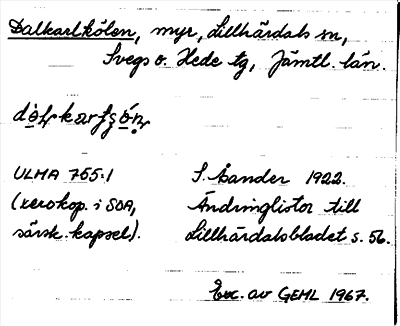 Dalkarlkölen, myr, Lillhärdals sn,
Svegs o. Hede tg, Jämtl. län.
ULMA 765:1 S. Sander 1922.
(xerokop. i SOA, Ändringlistor till
särsk. kapsel). Lillhärdalsbladet s. 56.
Exc. av GEML 1967.